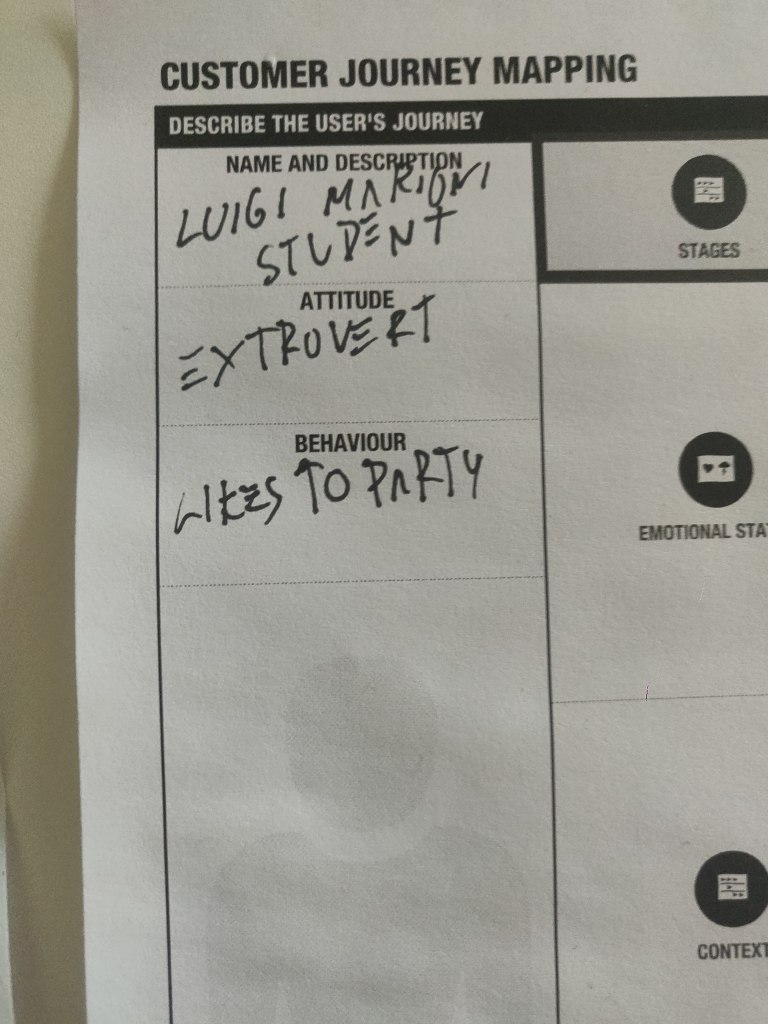 CUSTOMER JOURNEY MAPPING
DESCRIBE THE USER'S JOURNEY
NAME AND DESCRIPTION
LUIGI MARIONI
STUDENT
ATTITUDE
EXTROVERT
BEHAVIOUR
LIKES TO PARTY
STAGES
EMOTIONAL STA
CONTEXT